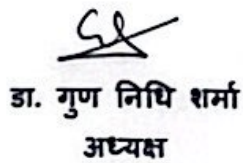 डा. गुण निधि शर्मा
अध्यक्ष